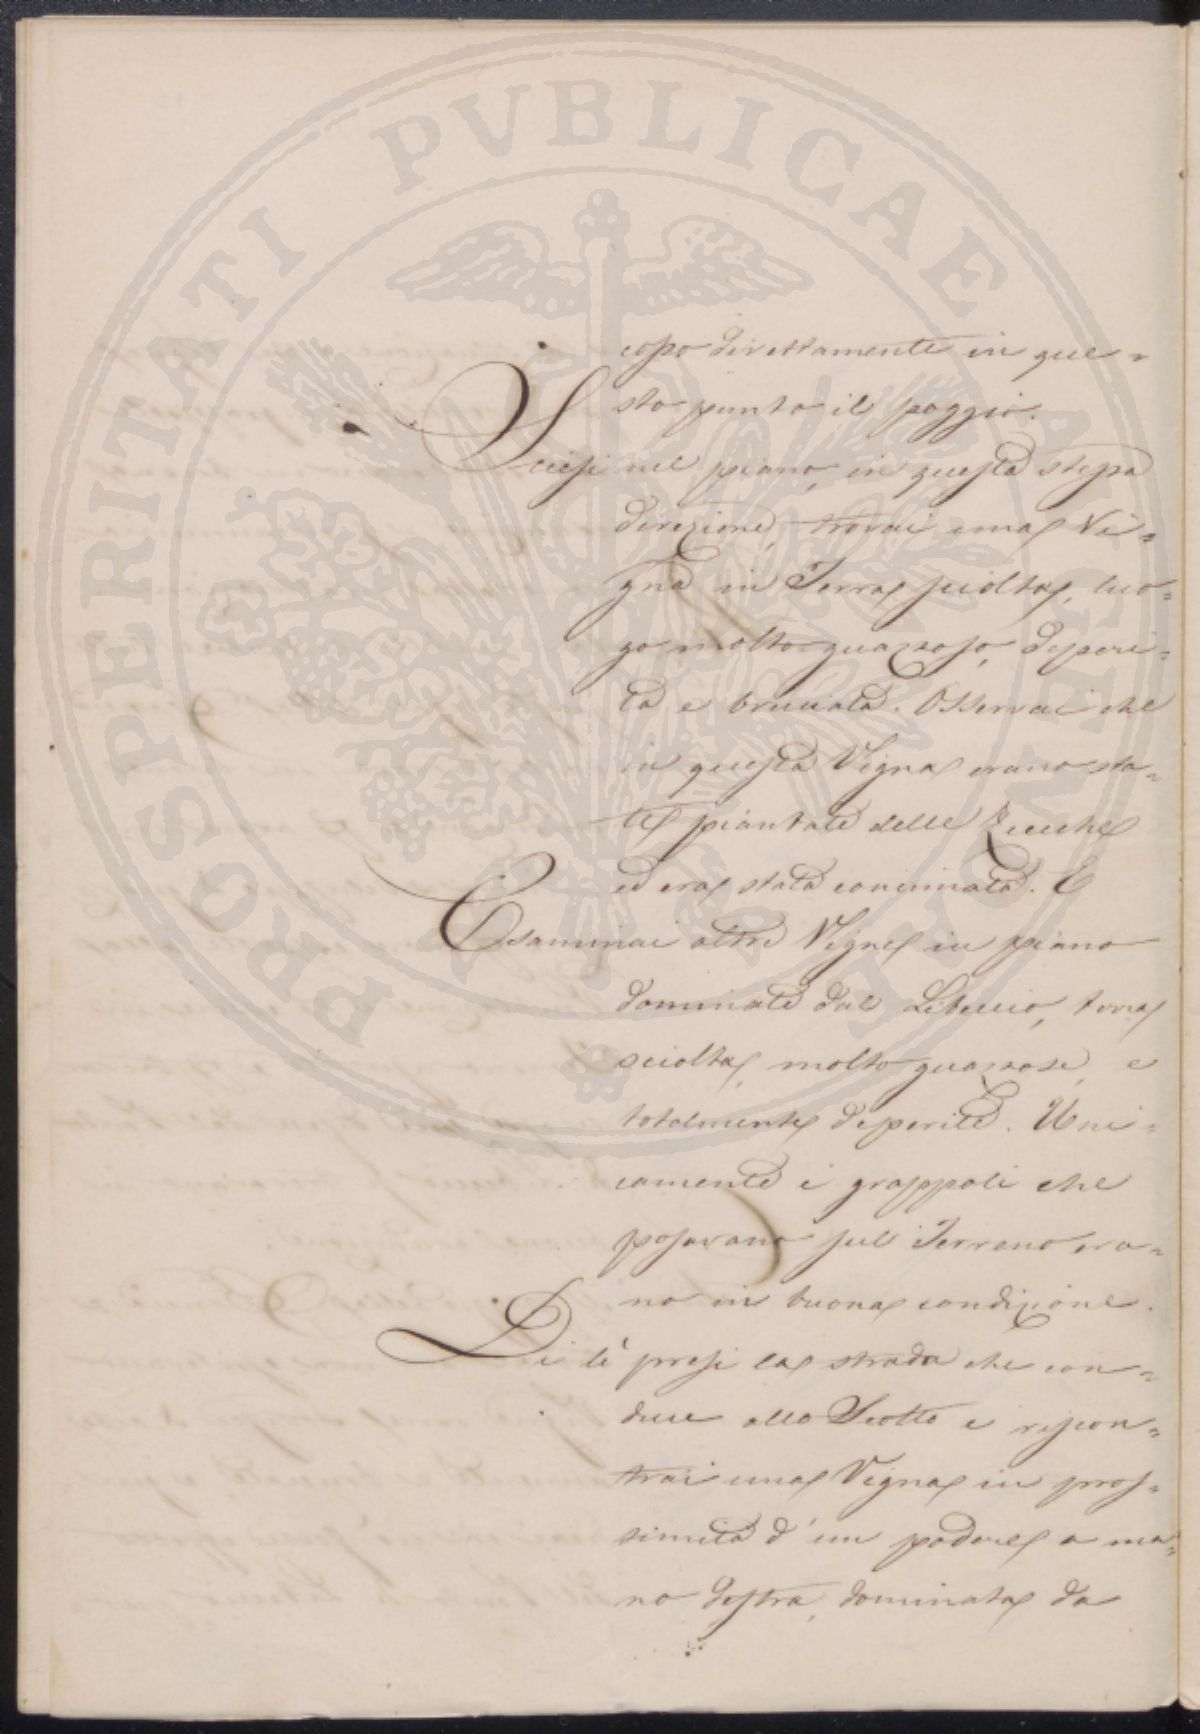 PROSPERITATI PVBLICAE AVGENDAE
copo direttamente in que=
sto punto il poggio.
Scesi nel piano, in questa stessa
direzione, trovai una Vi=
gna in Terra sciolta, luo=
go molto guazzoso, deperi=
ta e bruciata. Osservai che
in questa Vigna erano sta=
te piantate delle Zucche
ed era stata concimata. E
Esaminai altre Vigne in piano
dominate dal Libeccio, terra
sciolta, molto guazzose, e
totalmente deperite. Uni=
camente i grappoli che
posavano sul Terreno era=
no in buona condizione.
Di lì presi la strada che con=
duce allo Scotto e riscon=
trai una Vigna in pros=
simità d'un podere a ma=
no destra, dominata da